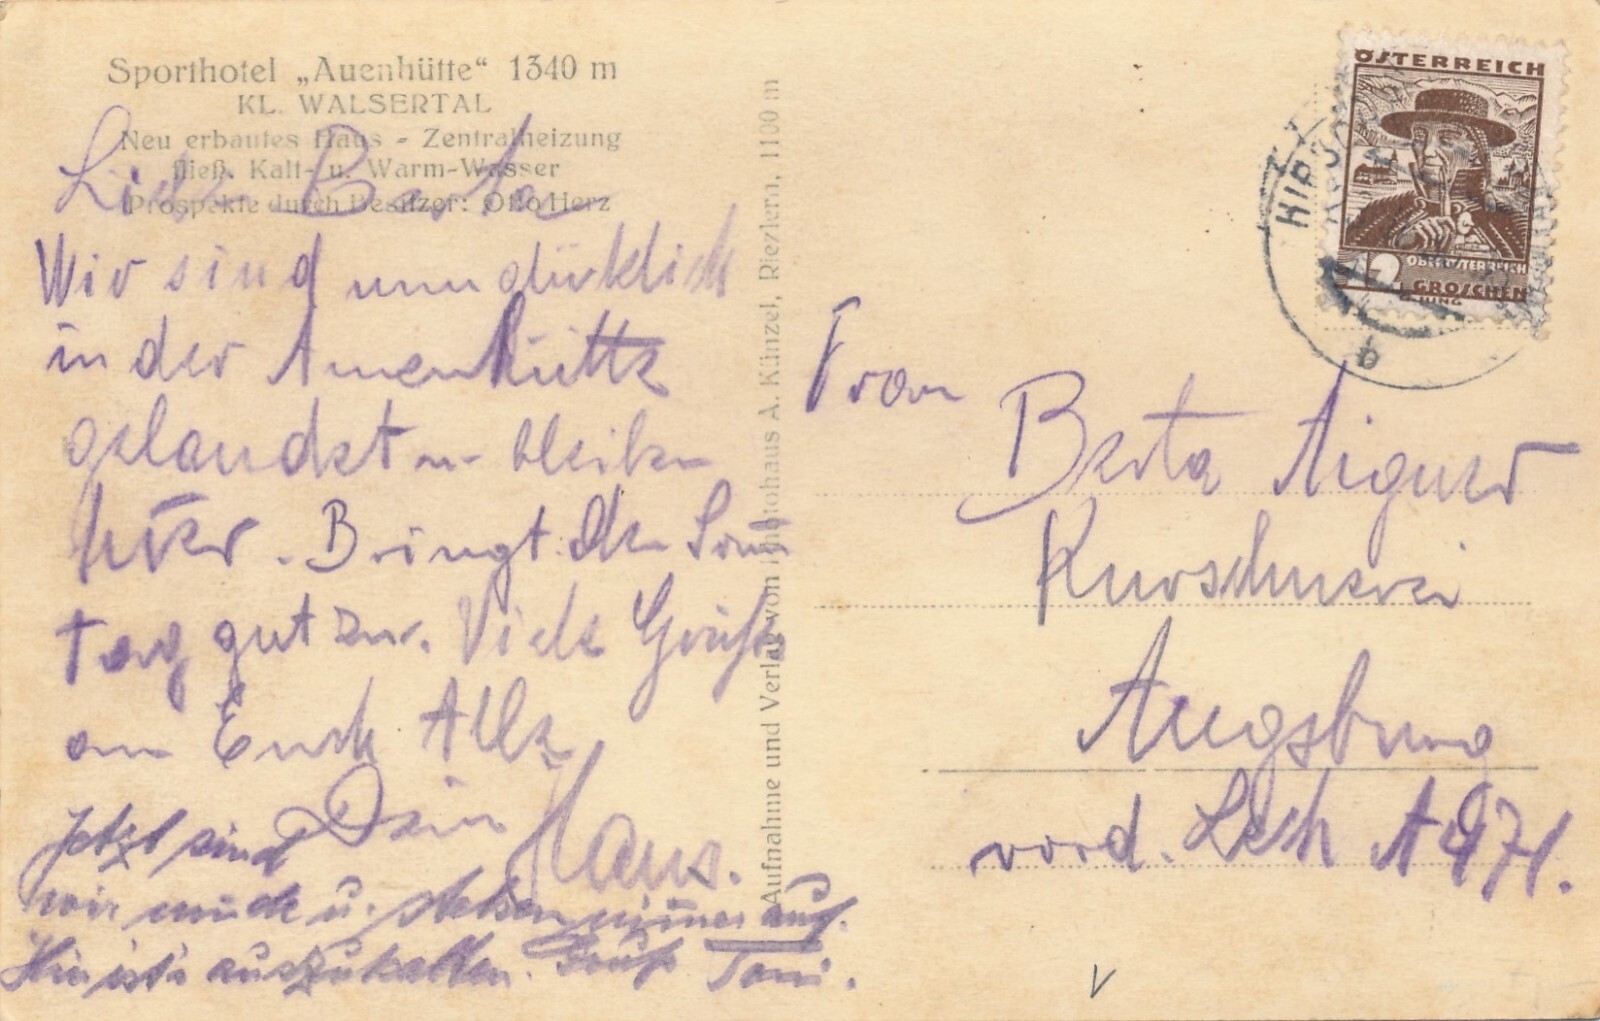 Sporthotel „Auenhütte“ 1340 m
KL. WALSERTAL
Neu erbautes Haus - Zentralheizung
fließ. Kalt- u. Warm-Wasser
Prospekte durch Besitzer: Otto Herz
Liebe Berta
Wir sind nun glücklich
in der Auenhütte
gelandet u. bleiben
hier. Bringt den Sonn
tag gut zu. Viele Grüße
an Euch Alle
Dein Hans.
Jetzt sind
wir müde u. stehen nimmer auf.
Hier ist's auszuhalten. Gruß Toni.
Aufnahme und Verlag von Photohaus A. Künzel, Riezlern, 1100 m
ÖSTERREICH
OBERÖSTERREICH
GROSCHEN
HIRSCH
b
Frau
Berta Aigner
Kürschnerei
Augsburg
vord. Lech A 471.